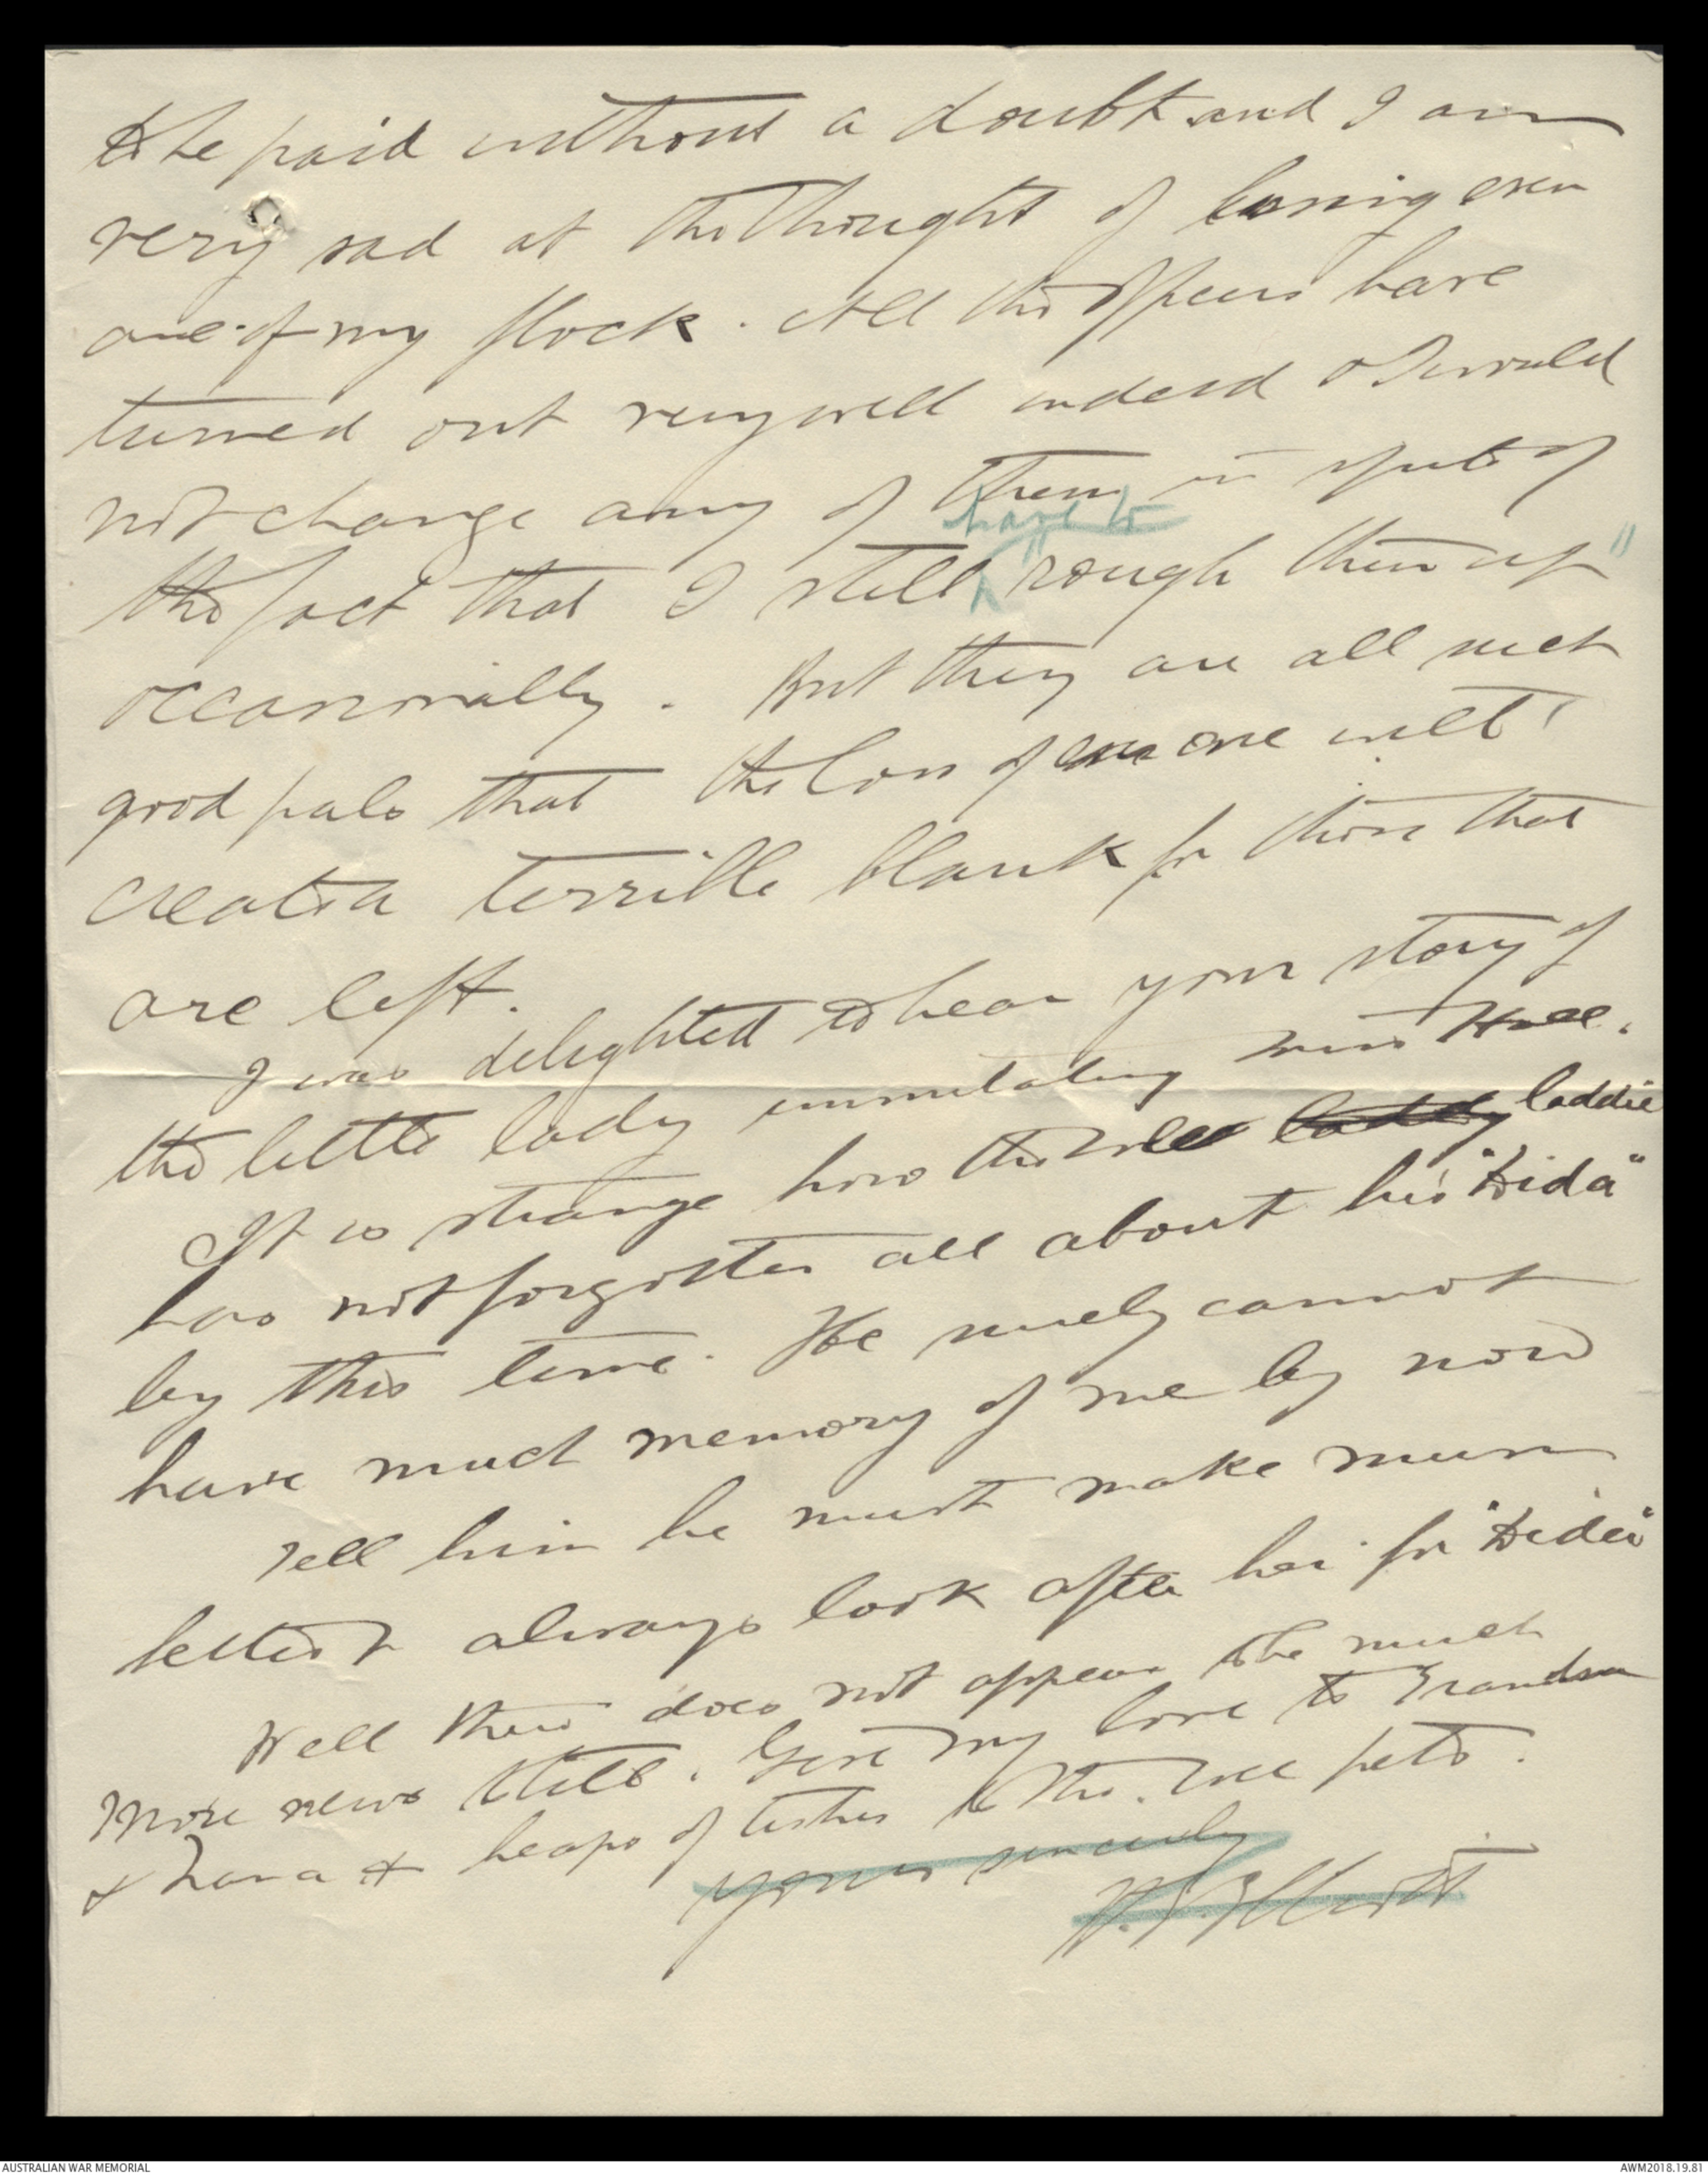 to be paid without a doubt and I am
very sad at the thought of losing even
one of my flock. All the Officers have
turned out very well indeed & I would
not change any of them in spite of
have to
the fact that I still "rough them up"
occasionally. But they are all such
good pals that the loss of even one will
create a terrible blank for those that
are left.
I was delighted to hear your story of
the little lady immitating Miss
It is strange how the wee laddy laddie
has not forgotten all about his "Dida"
by this time. He surely cannot
have much memory of me by now
Tell him he must make mum
better & always look after her for "Dida"
Well there does not appear to be much
more news still. Give my love to Grandma
& Nana & heaps of kisses to the wee pets.
yours sincerely
H.E. Elliott
AUSTRALIAN WAR MEMORIAL
AWM2018.19.81